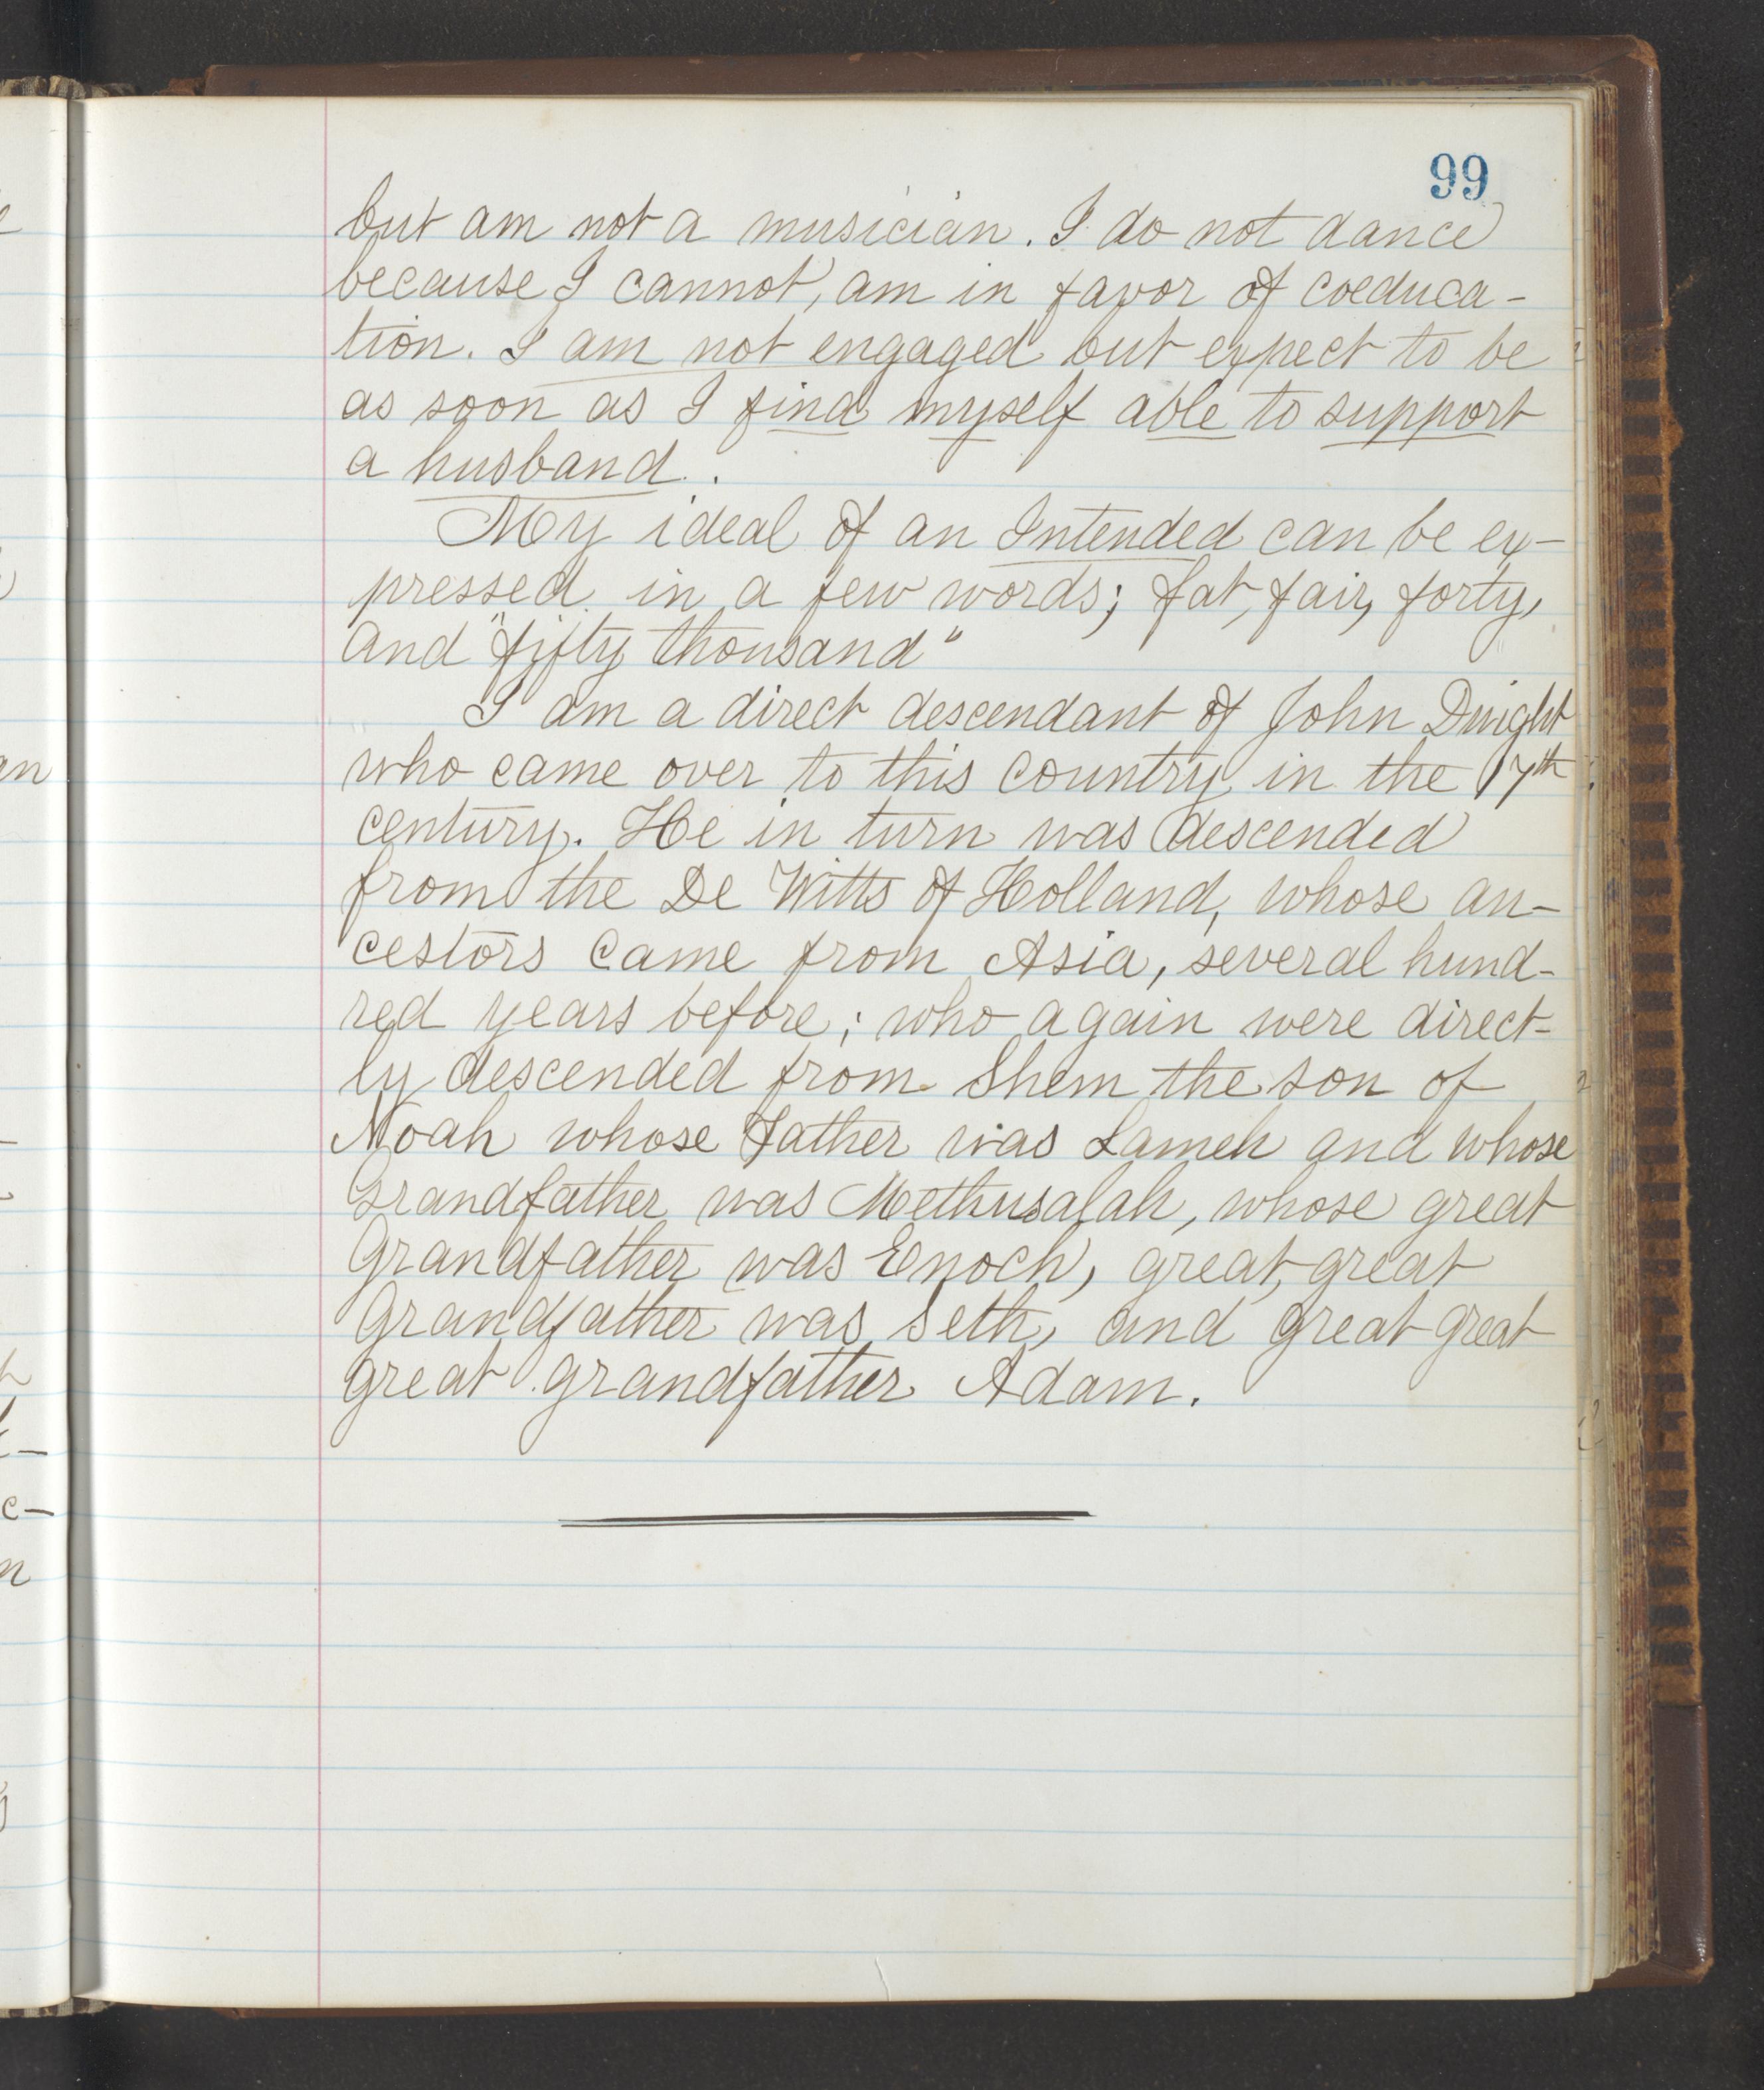 99
but am not a musician. I do not dance
because I cannot, am in favor of coeduca-
tion. I am not engaged but expect to be
as soon as I find myself able to support
a husband.
My ideal of an Intended can be ex-
pressed in a few words; fat, fair, forty,
and "fifty thousand"
I am a direct descendant of John Dwight
who came over to this country in the 17th
century. He in turn was descended
from the De Witts of Holland, whose an-
cestors came from Asia, several hund-
red years before; who again were direct-
ly descended from Shem the son of
Noah whose Father was Lameh and whose
Grandfather was Methusalah, whose great
Grandfather was Enoch, great, great
Grandfather was Seth, and great great
great grandfather Adam.